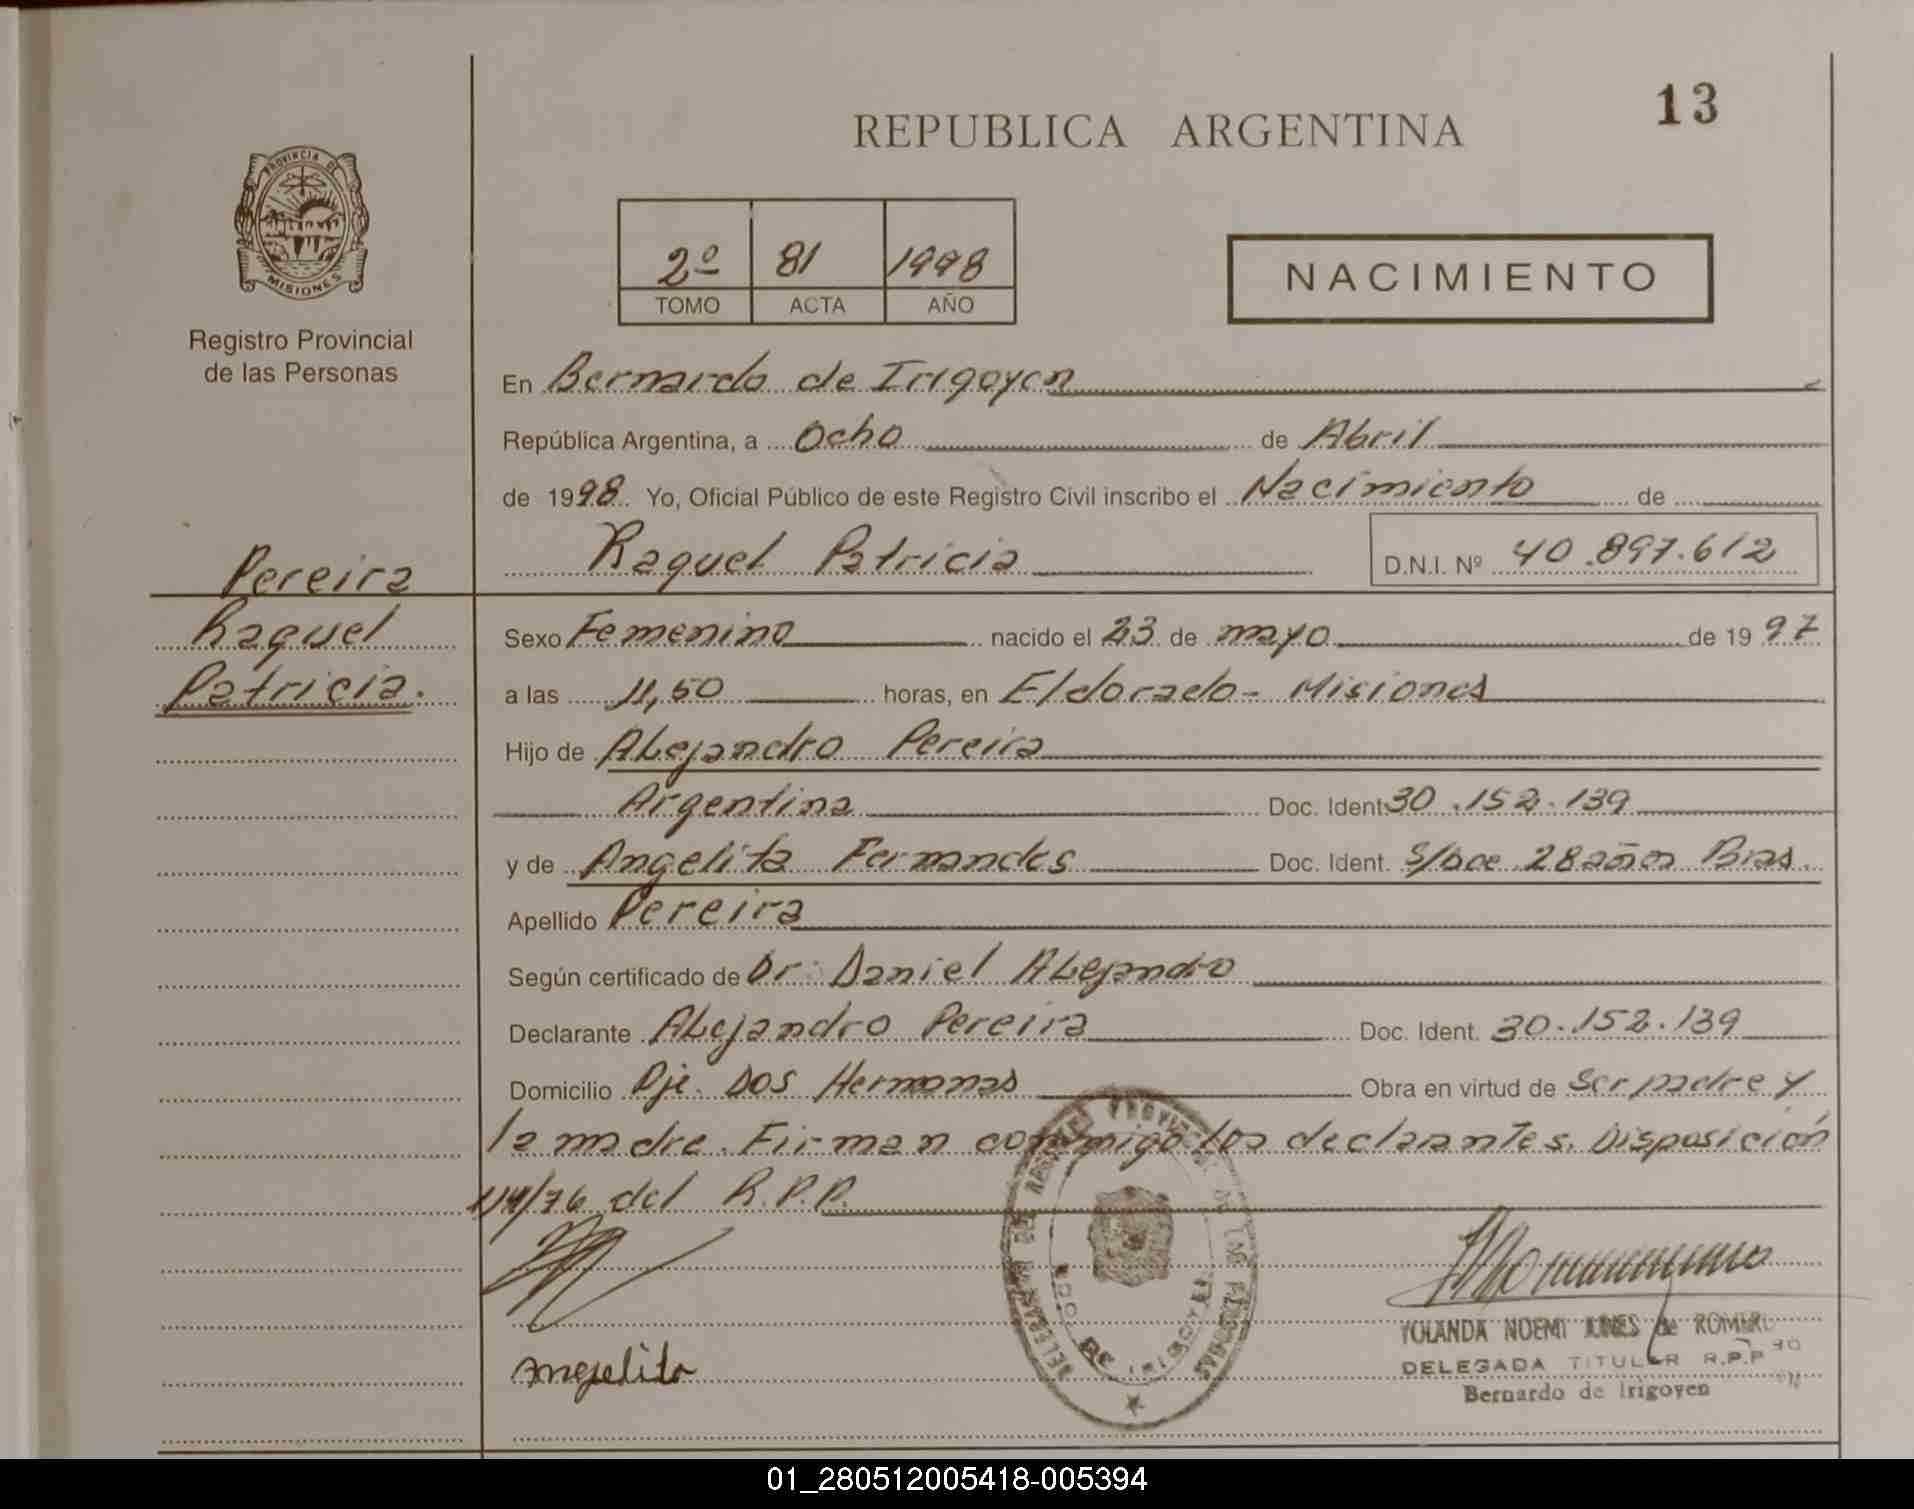 13
REPUBLICA ARGENTINA
PROVINCIA DE
MISIONES
Registro Provincial
de las Personas
2º 81 1998
TOMO ACTA AÑO
NACIMIENTO
En Bernardo de Irigoyen
República Argentina, a Ocho de Abril
de 1998 Yo, Oficial Público de este Registro Civil inscribo el Nacimiento de
Raquel Patricia D.N.I. Nº 40.897.612
Pereira
Raquel
Patricia.
Sexo Femenino nacido el 23 de mayo de 1997
a las 11,50 horas, en Eldorado - Misiones
Hijo de Alejandro Pereira
Argentina Doc. Ident. 30.152.139
y de Angelita Fernandes Doc. Ident. S/Doc 28 años Bras.
Apellido Pereira
Según certificado de Dr. Daniel Alejandro
Declarante Alejandro Pereira Doc. Ident. 30.152.139
Domicilio Pje. Dos Hermanas Obra en virtud de Ser padre y
la madre. Firman conmigo los declarantes. Disposición
/76 del R.P.P.
Angelita
YOLANDA NOEMI de ROMERO
DELEGADA TITULAR R.P.P
Bernardo de Irigoyen
01_280512005418-005394